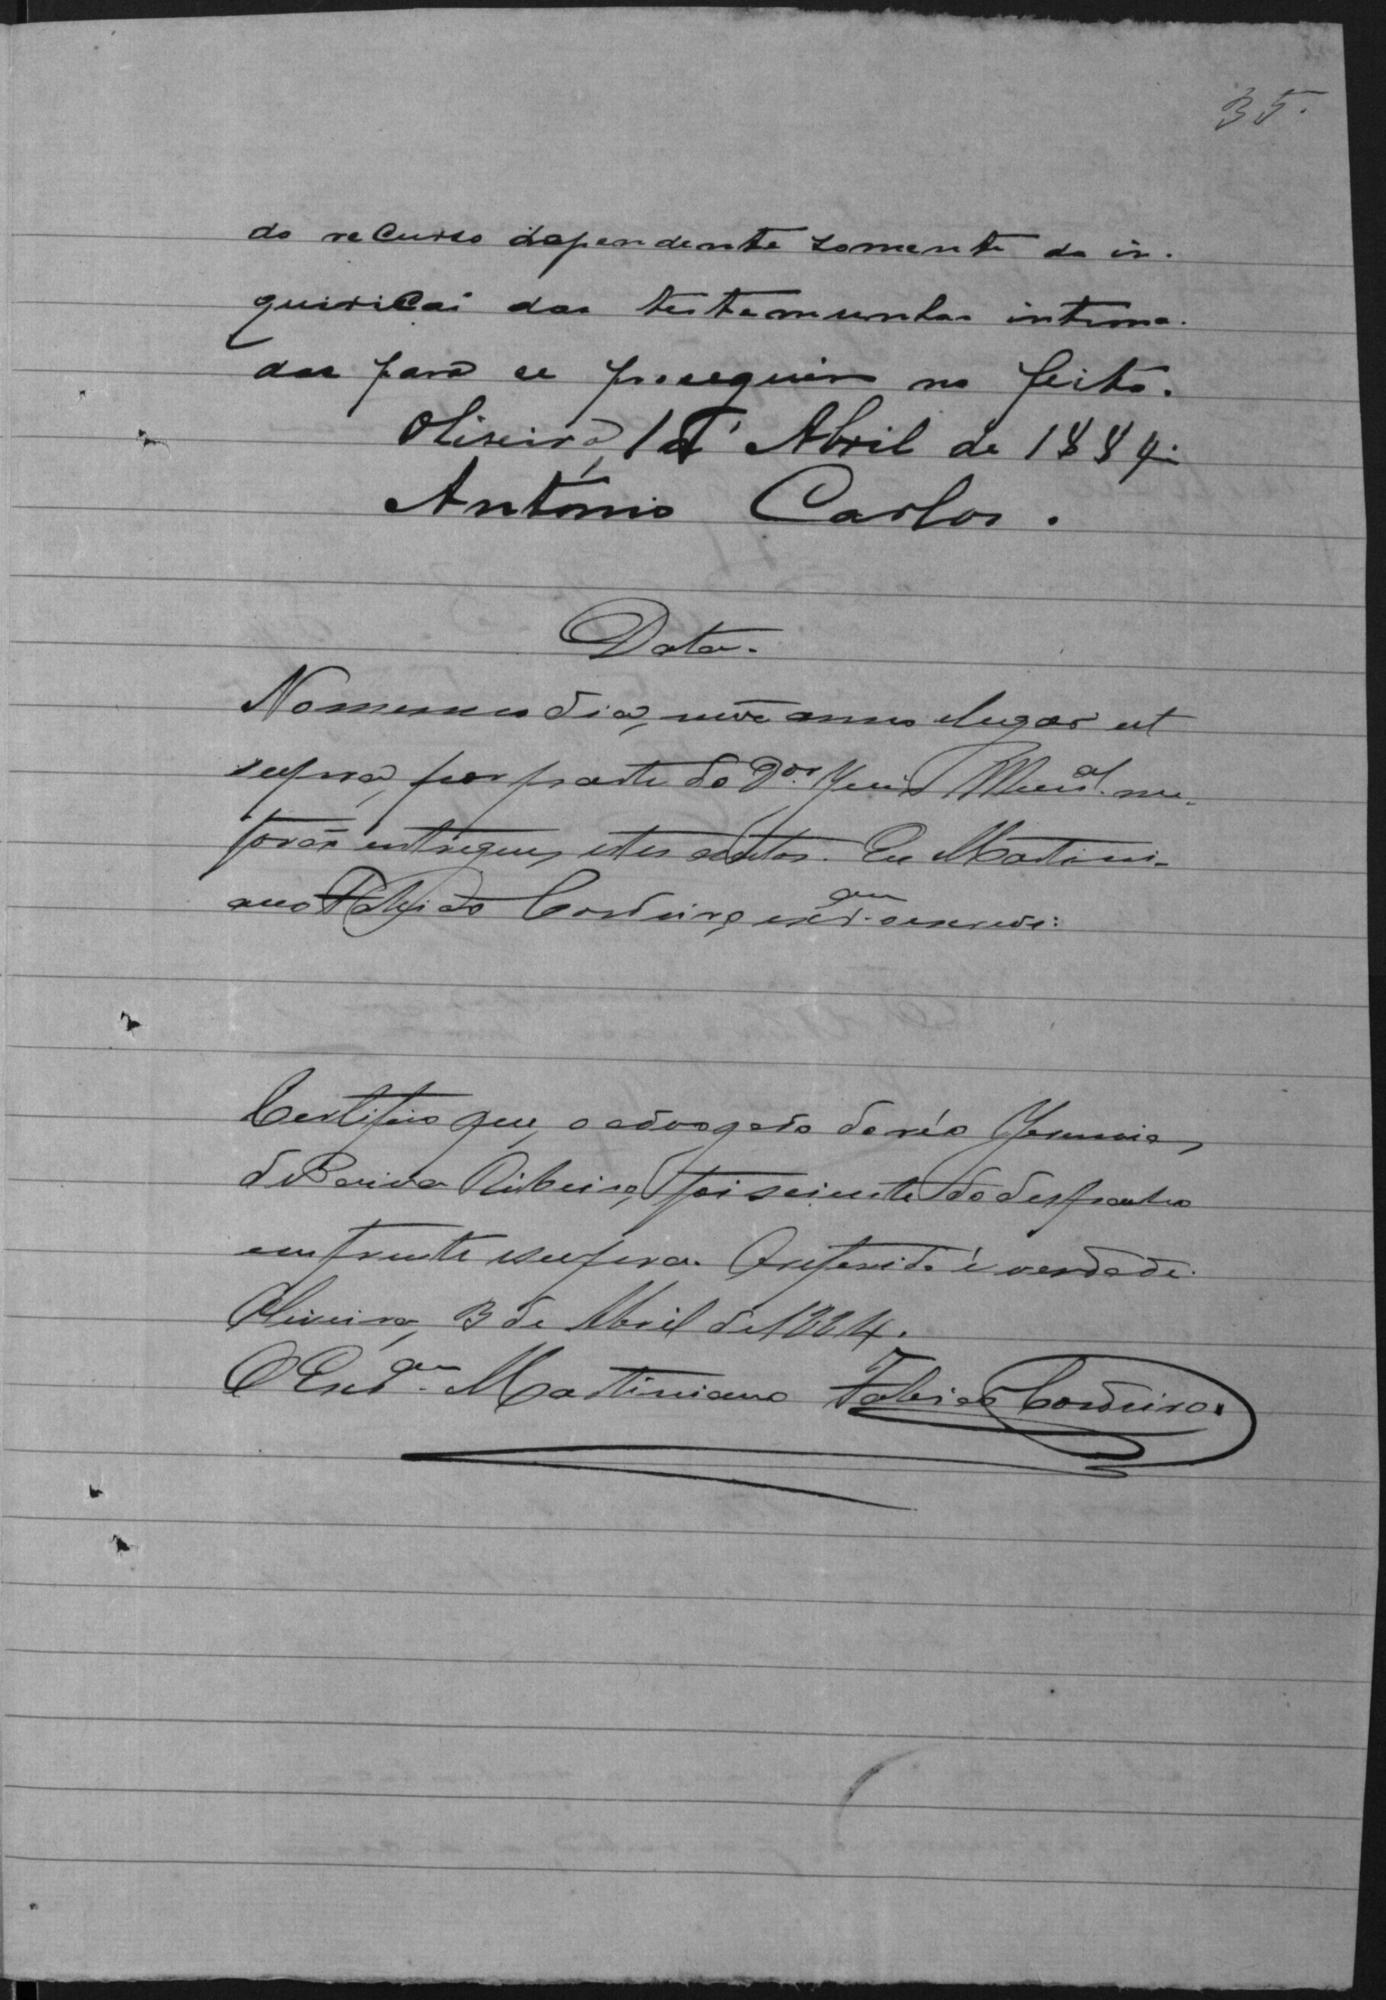 35.
do recurso dependente somente da in-
quiricaõ das testemunhas intima-
das para se proseguir no feito.
Oliveira, 1º Abril de 1884.
Antonio Carlos.
Data.
No mesmo dia, mez anno e lugar ut
supra, por parte do Dor. Juiz Mual. me
foraõ entregues estes autos. Eu Martini-
ano Fabiaõ Cordeiro, escram. o escrevi:
Certifico que, o advogado do réo Jeremias
de Paiva Ribeiro, foi sciente do despacho
em frente e supra. O referido é verdade.
Oliveira, 3 de Abril de 1884.
O Escram. Martiniano Fabiaõ Cordeiro.